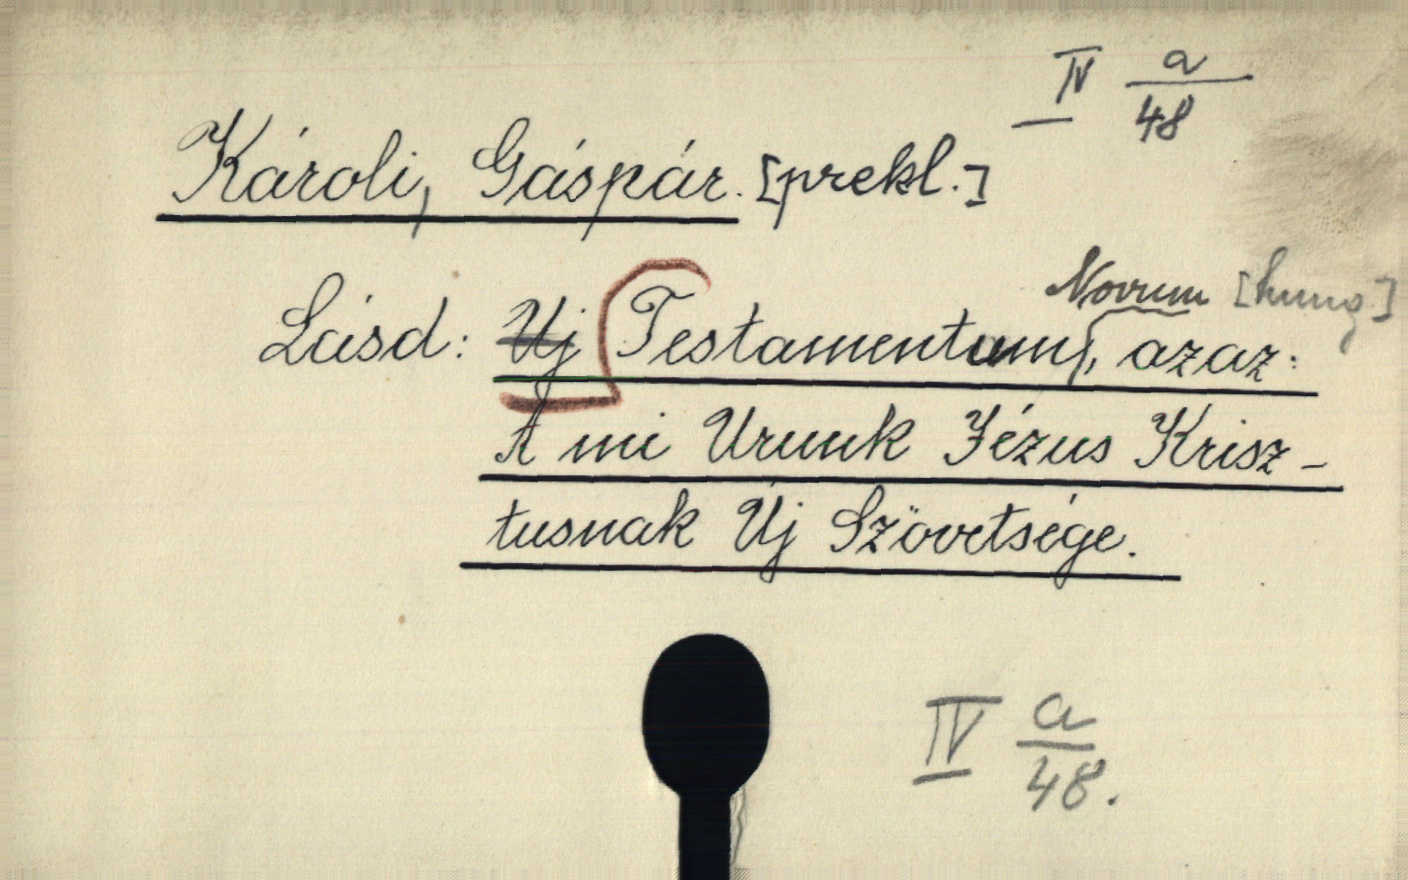 IV a/48
Károli, Gáspár. [prekl.]
Novum [hung.]
Lásd: Uj Testamentum, azaz:
A mi Urunk Jézus Krisz-
tusnak Új Szövetsége.
IV a/48.